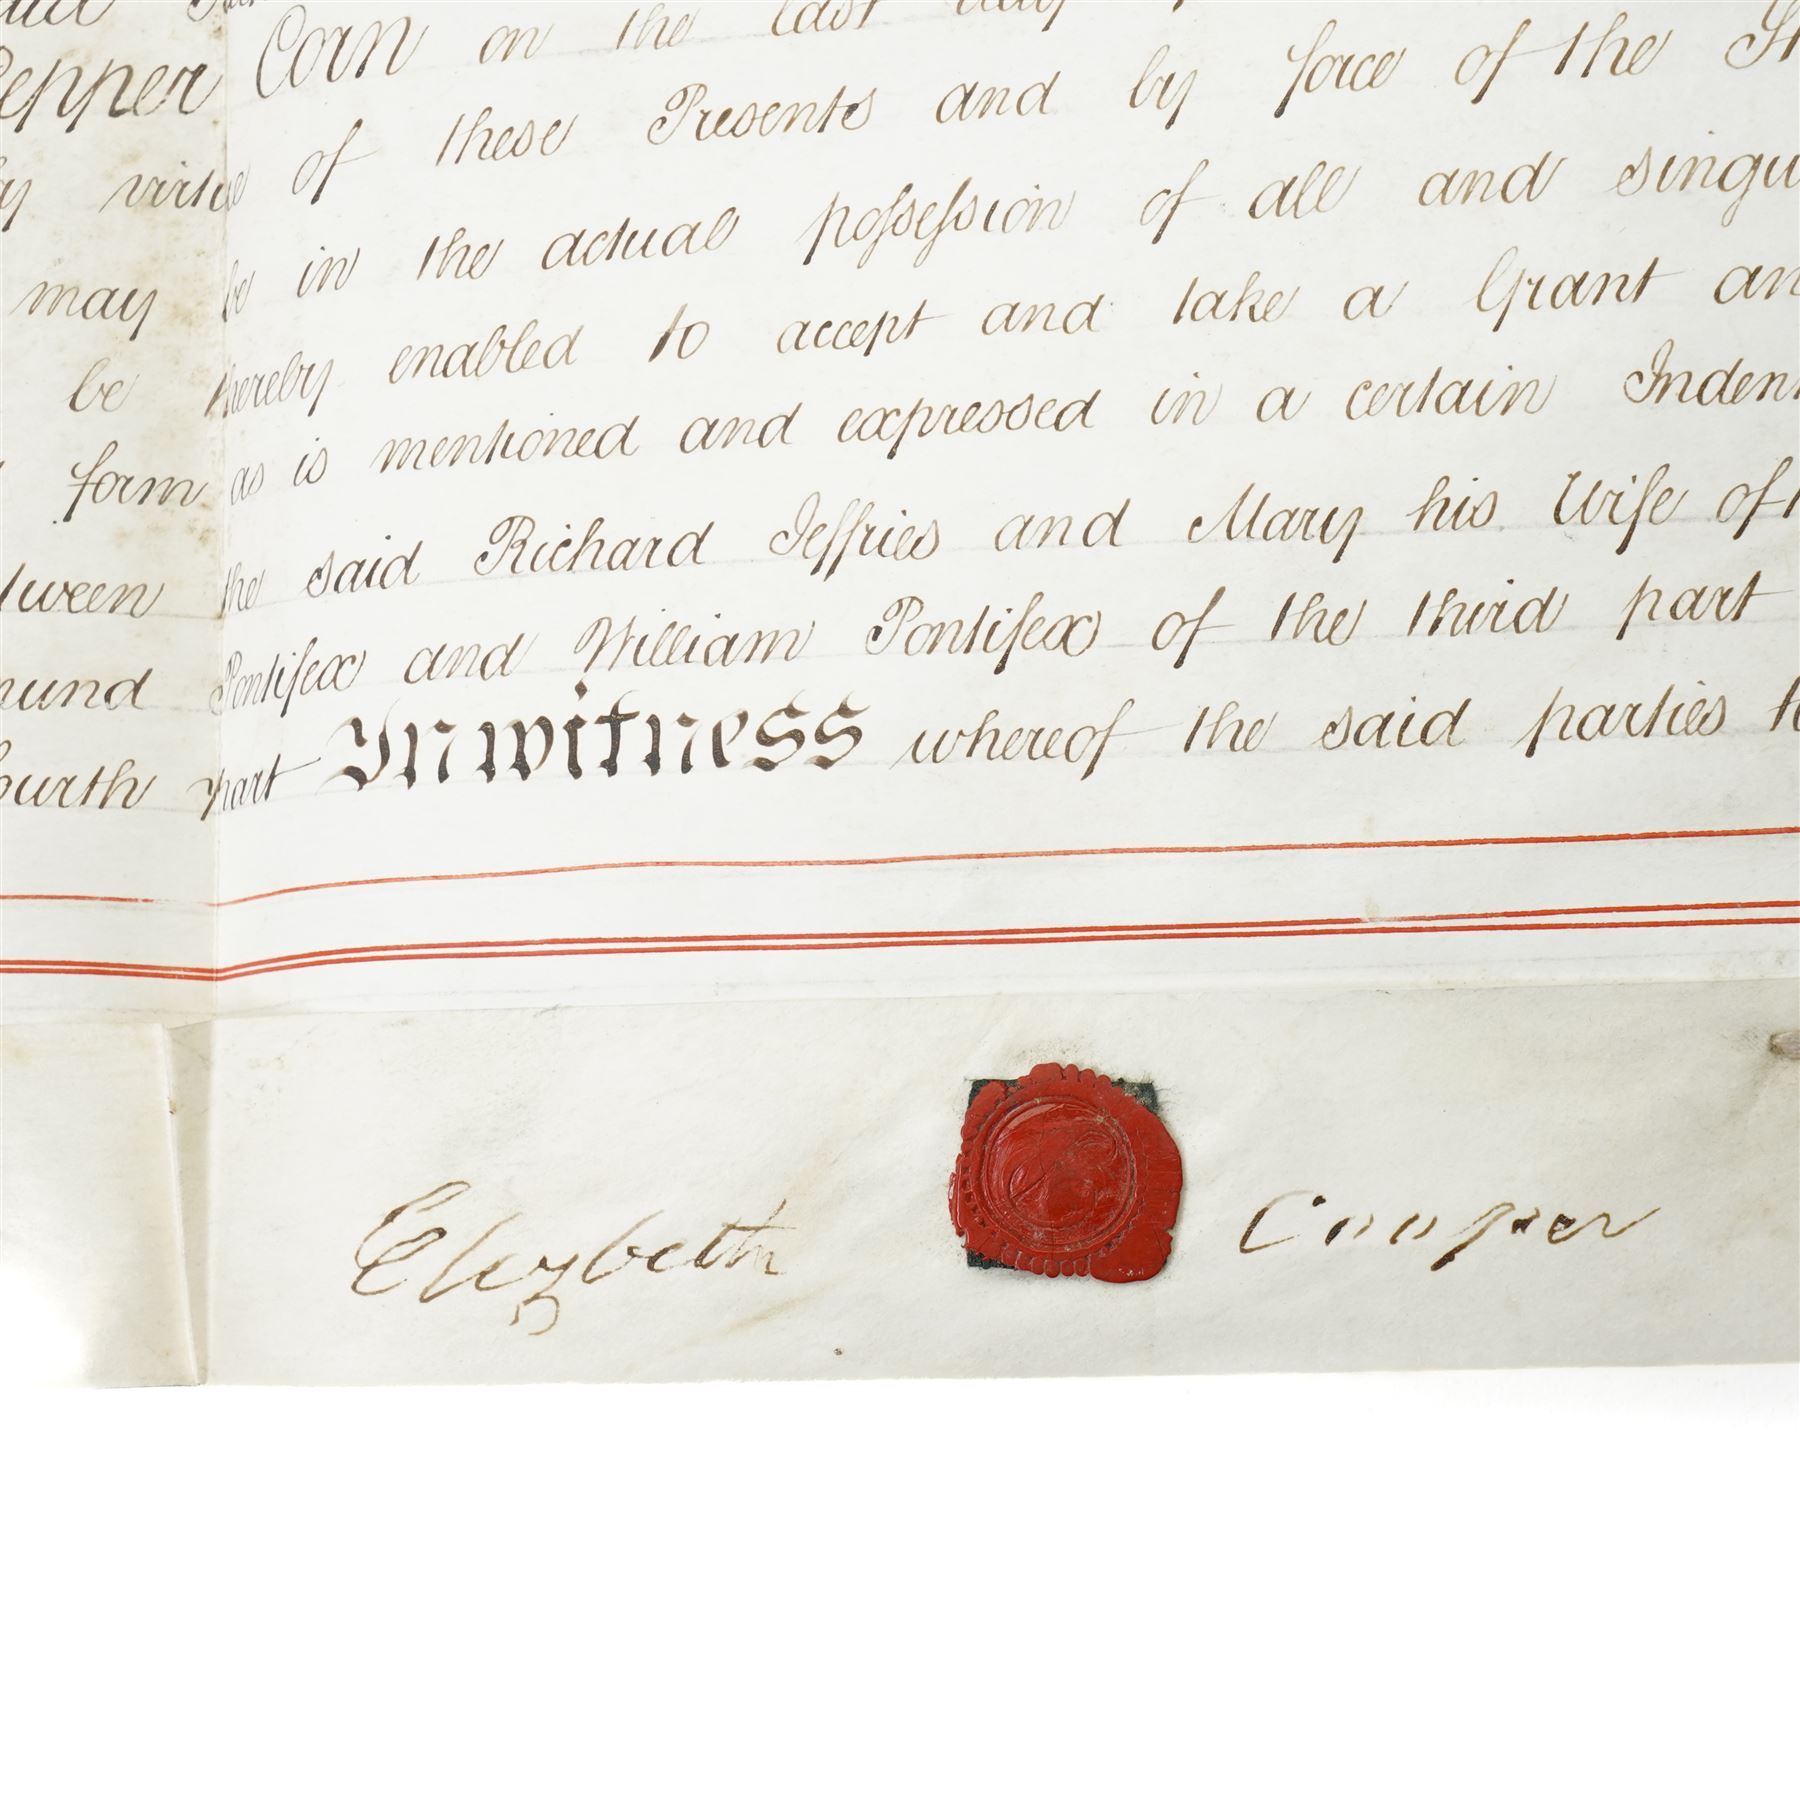 Pepper Corn on the last day
by virtue of these Presents and by force of the
may be in the actual possession of all and singu
be thereby enabled to accept and take a Grant an
form as is mentioned and expressed in a certain Indent
tween the said Richard Jeffries and Mary his Wife of t
mund Pontifex and William Pontifex of the third part
ourth part In witness whereof the said parties
Elizbeth Cooper